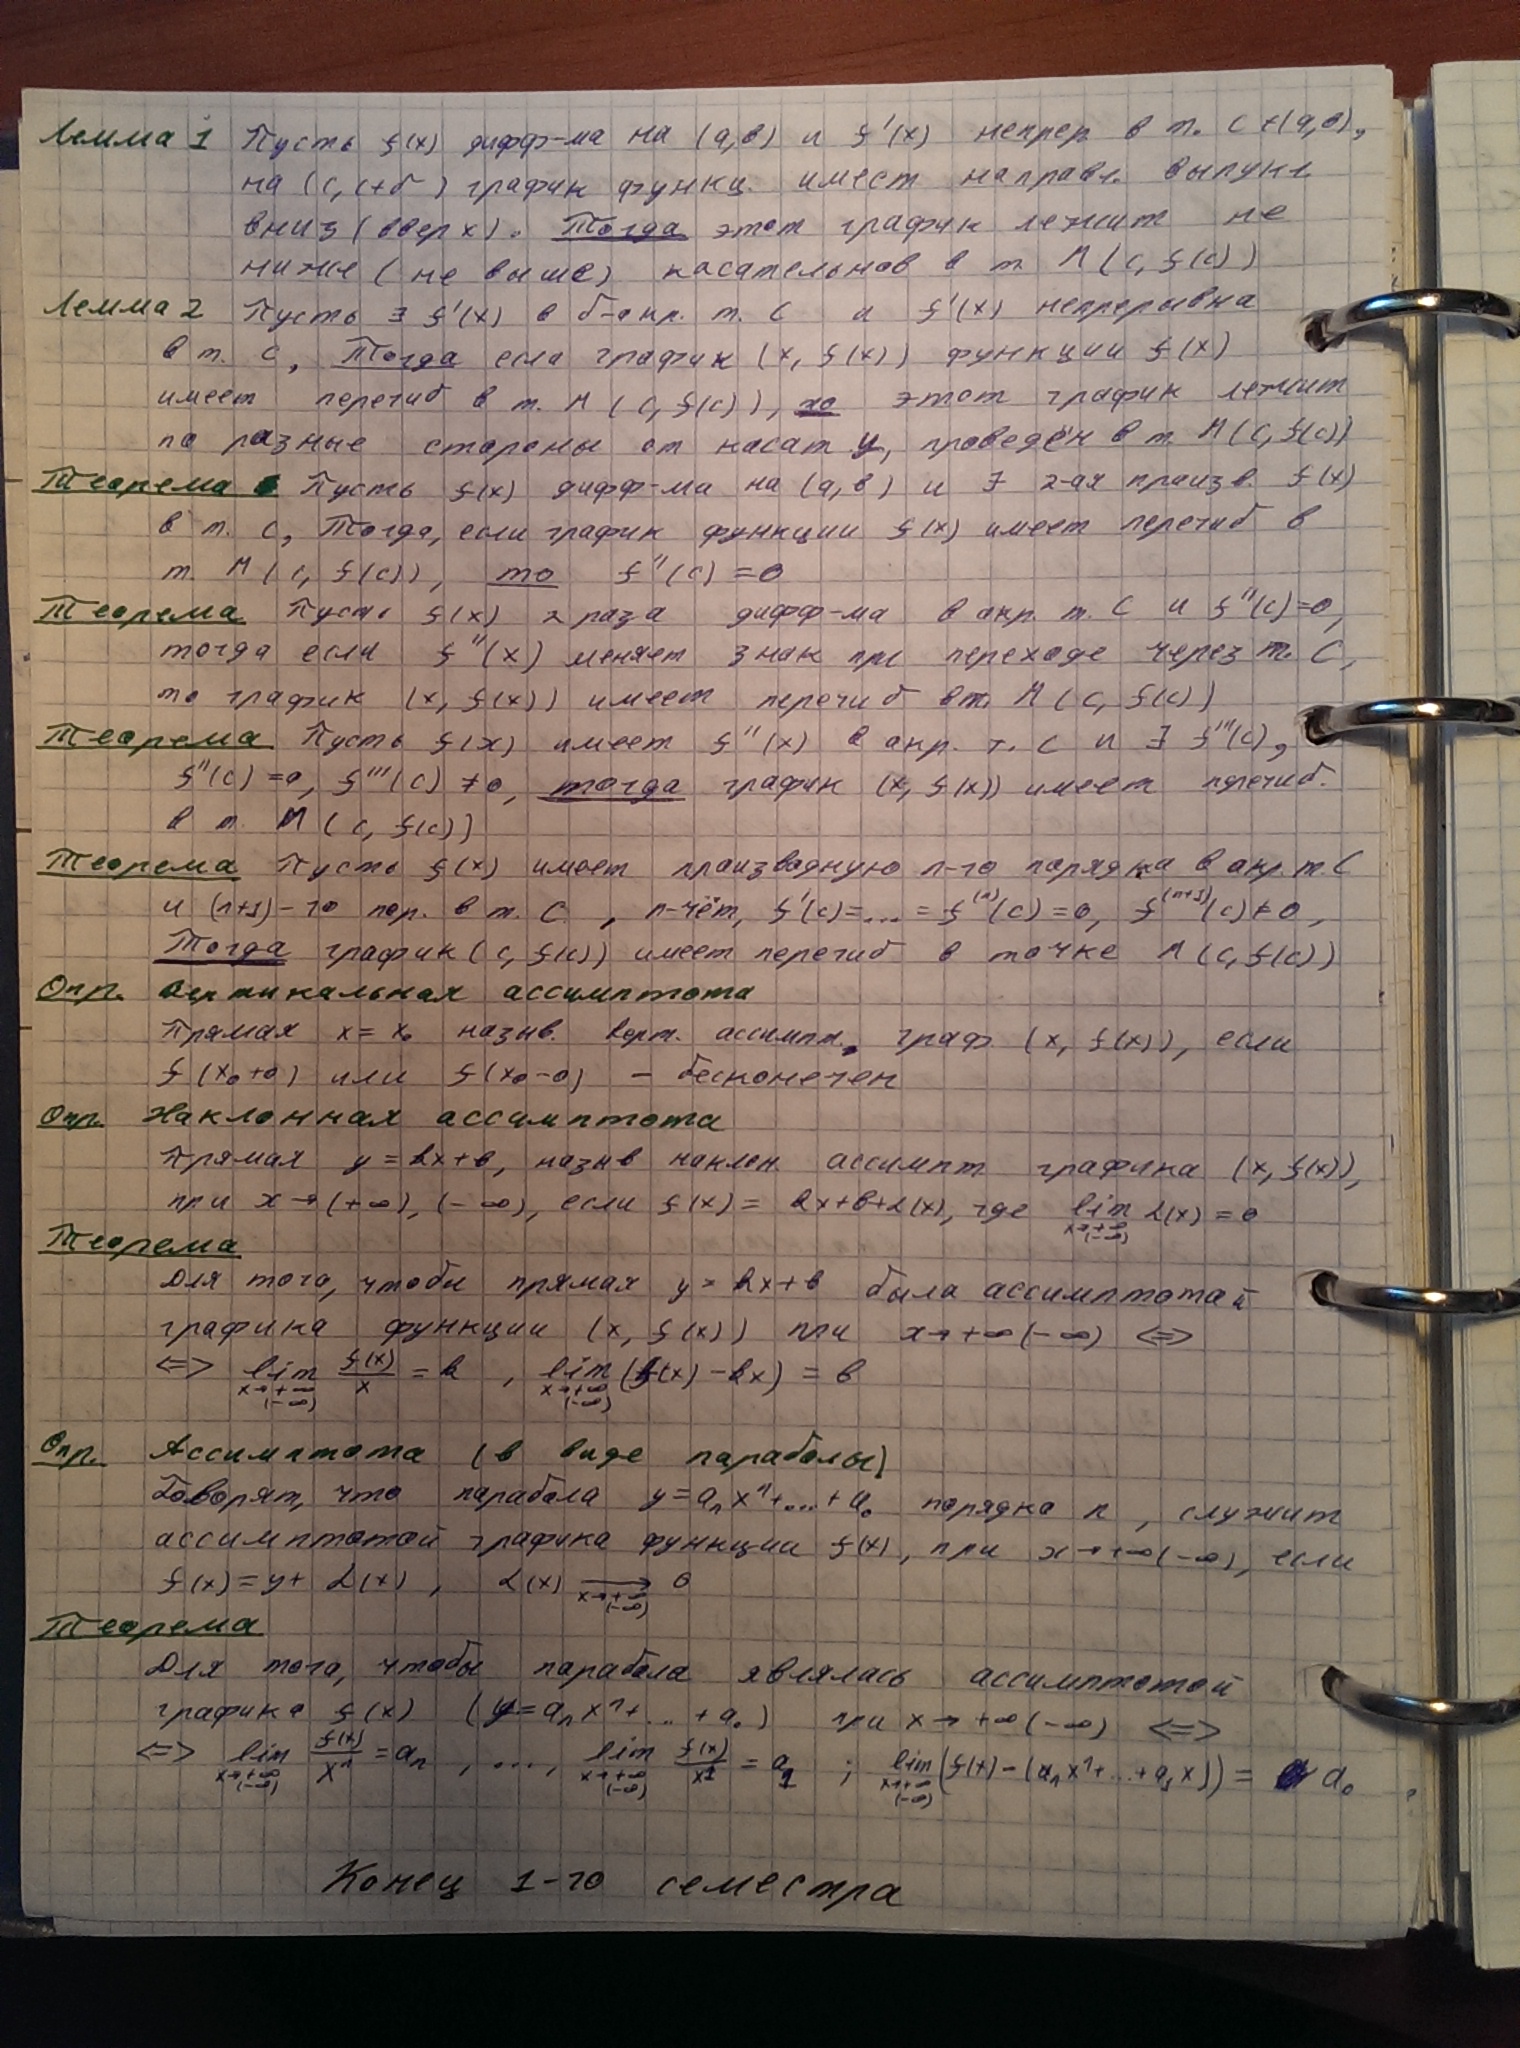 Лемма 1 Пусть f(x) дифф-ма на (a,b) и f'(x) непрер. в т. C ∈ (a,b),
на (c, c+δ) график функц. имеет направл. выпукл.
вниз (вверх). Тогда этот график лежит не
ниже (не выше) касательной в т. M(c, f(c))
Лемма 2 Пусть ∃ f'(x) в δ-окр. т. C и f'(x) непрерывна
в т. C, Тогда если график (x, f(x)) функции f(x)
имеет перегиб в т. M(c, f(c)), то этот график лежит
по разные стороны от касат., проведён в т. M(c, f(c))
Теорема Пусть f(x) дифф-ма на (a,b) и ∃ 2-ая произв. f(x)
в т. C, Тогда, если график функции f(x) имеет перегиб в
т. M(c, f(c)), то f''(c) = 0
Теорема Пусть f(x) 2 раза дифф-ма в окр. т. C и f''(c)=0,
тогда если f''(x) меняет знак при переходе через т. C,
то график (x, f(x)) имеет перегиб в т. M(c, f(c))
Теорема Пусть f(x) имеет f''(x) в окр. т. C и ∃ f'''(c),
f''(c)=0, f'''(c) ≠ 0, тогда график (x, f(x)) имеет перегиб.
в т. M(c, f(c))
Теорема Пусть f(x) имеет производную n-го порядка в окр. т. C
и (n+1)-го пор. в т. C, n-чёт, f'(c)=...=f⁽ⁿ⁾(c)=0, f⁽ⁿ⁺¹⁾(c)≠0,
Тогда график (c, f(c)) имеет перегиб в точке M(c, f(c))
Опр. Вертикальная ассимптота
Прямая x = x₀ назыв. верт. ассимпт. граф (x, f(x)), если
f(x₀+0) или f(x₀-0) - бесконечен
Опр. Наклонная ассимптота
Прямая y = kx+b, назыв наклон ассимпт графика (x, f(x)),
при x→(+∞), (-∞), если f(x) = kx+b+α(x), где lim x→+∞ (-∞) α(x) = 0
Теорема
Для того, чтобы прямая y = kx+b была ассимптотой
графика функции (x, f(x)) при x→+∞(-∞) <=>
<=> lim x→+∞ (-∞) f(x)/x = k , lim x→+∞ (-∞) (f(x) - kx) = b
Опр. Ассимптота (в виде параболы)
Говорят, что парабола y = aₙxⁿ+...+a₀ порядка n, служит
ассимптотой графика функции f(x), при x→+∞(-∞), если
f(x) = y + α(x) , α(x) → x→+∞ (-∞) 0
Теорема
Для того, чтобы парабола являлась ассимптотой
графика f(x) (y = aₙxⁿ+...+a₀) при x→+∞(-∞) <=>
<=> lim x→+∞ (-∞) f(x)/xⁿ = aₙ , ..., lim x→+∞ (-∞) f(x)/x¹ = a₁ ; lim x→+∞ (-∞) (f(x) - (aₙxⁿ+...+a₁x)) = a₀
Конец 1-го семестра